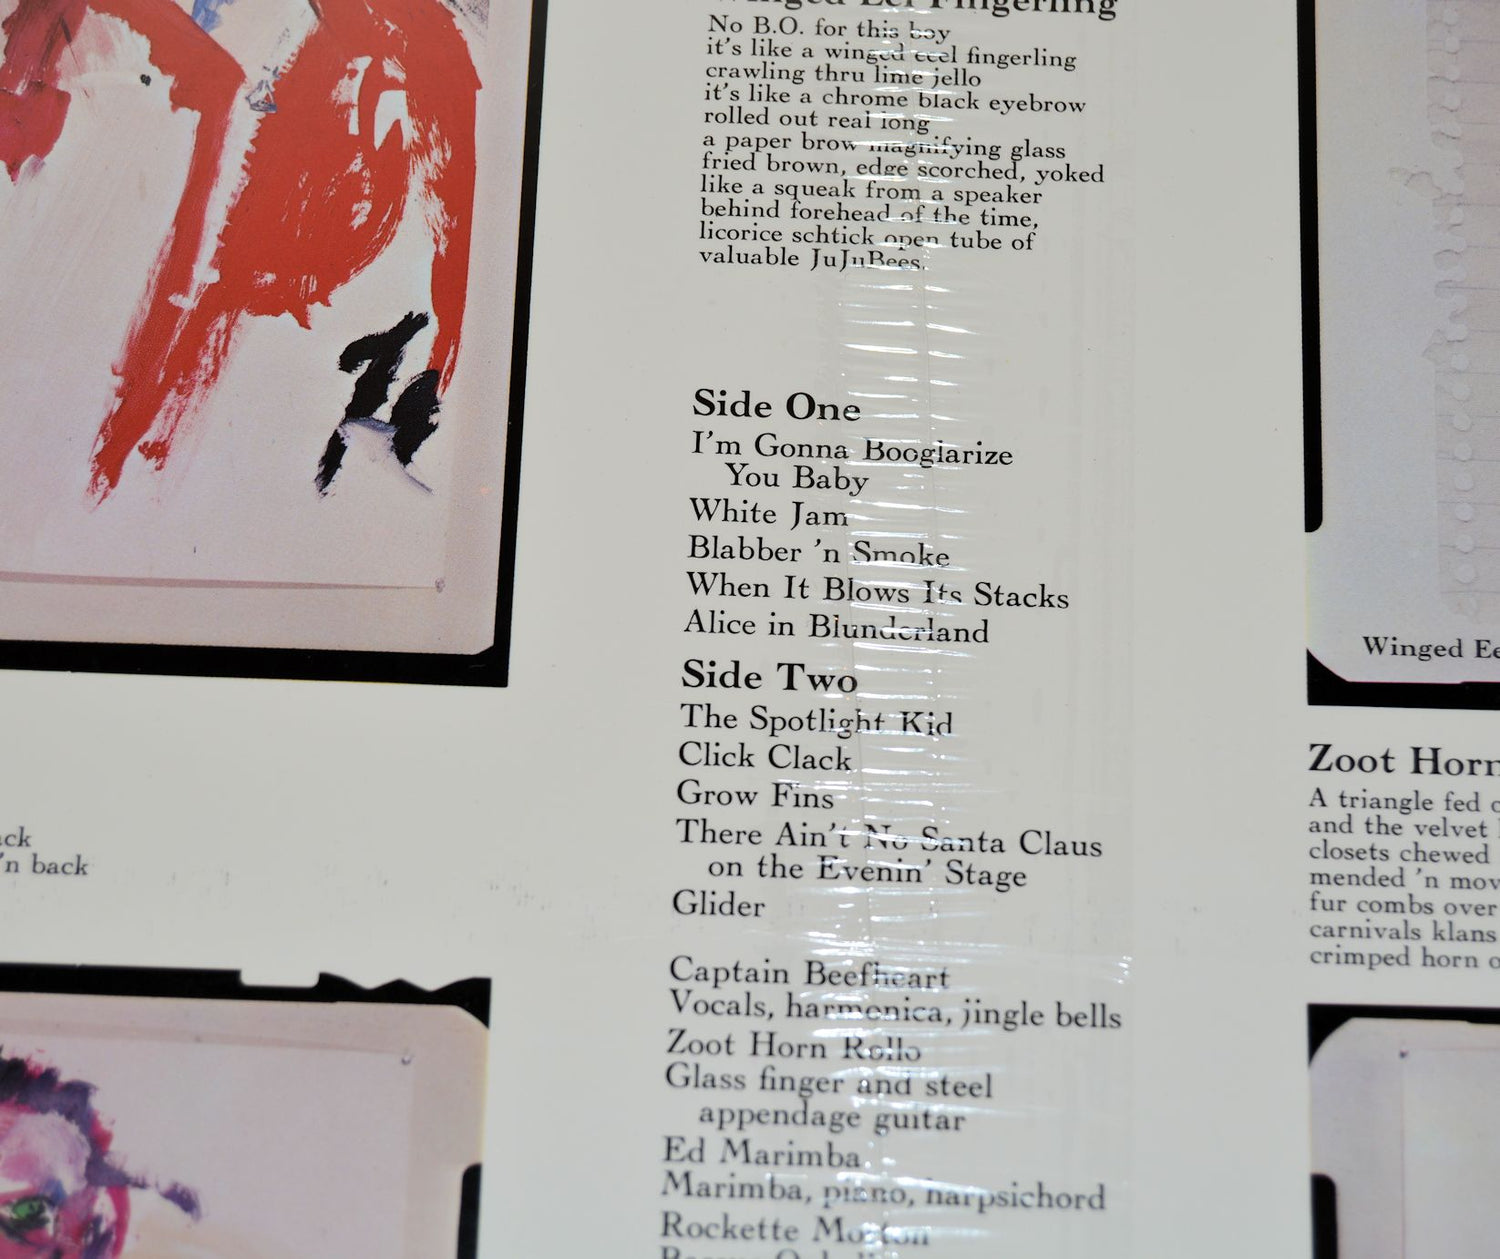 Winged Eel Fingerling
No B.O. for this boy
it's like a winged eel fingerling
crawling thru lime jello
it's like a chrome black eyebrow
rolled out real long
a paper brow magnifying glass
fried brown, edge scorched, yoked
like a squeak from a speaker
behind forehead of the time,
licorice schtick open tube of
valuable JuJuBees.
Side One
I'm Gonna Booglarize
You Baby
White Jam
Blabber 'n Smoke
When It Blows Its Stacks
Alice in Blunderland
Side Two
The Spotlight Kid
Click Clack
Grow Fins
There Ain't No Santa Claus
on the Evenin' Stage
Glider
Captain Beefheart
Vocals, harmonica, jingle bells
Zoot Horn Rollo
Glass finger and steel
appendage guitar
Ed Marimba
Marimba, piano, harpsichord
Rockette Morton
ack
'n back
Winged Ee
Zoot Horn
A triangle fed
and the velvet
closets chewed
mended 'n mov
fur combs over
carnivals klans
crimped horn